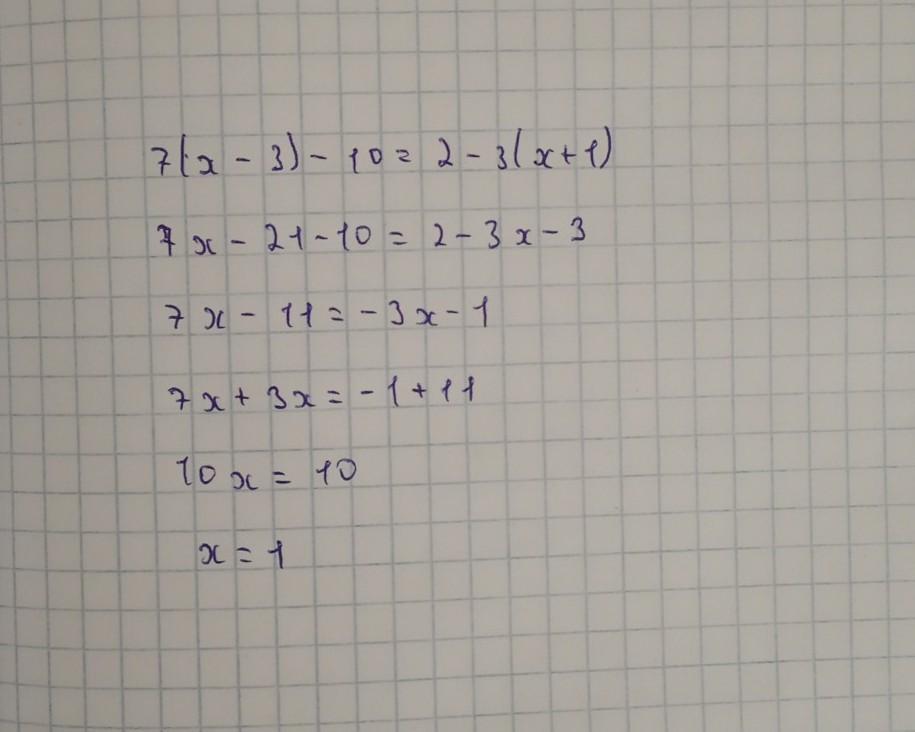 7(x - 3) - 10 = 2 - 3(x + 1)
7x - 21 - 10 = 2 - 3x - 3
7x - 11 = -3x - 1
7x + 3x = -1 + 11
10x = 10
x = 1